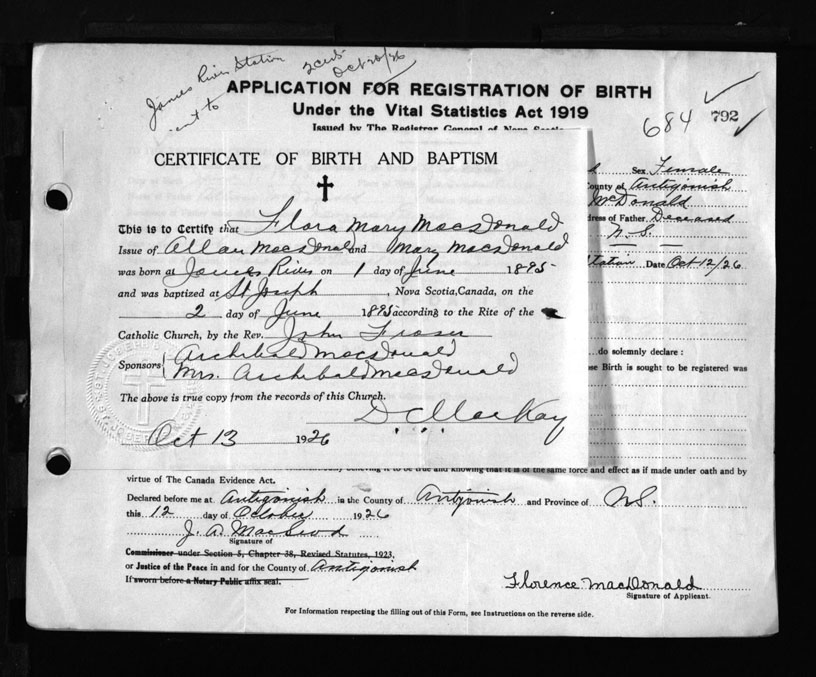 James River Station
sent to
2 certs
Oct 26/26
APPLICATION FOR REGISTRATION OF BIRTH
Under the Vital Statistics Act 1919
Issued by The Registrar General of Nova Scotia
684 792
Sex Female
County of Antigonish
McDonald
Address of Father Deceased
N. S.
Station Date Oct 12/26
do solemnly declare :
Birth is sought to be registered was
CERTIFICATE OF BIRTH AND BAPTISM
This is to Certify that Flora Mary MacDonald
Issue of Allan MacDonald and Mary MacDonald
was born at James River on 1 day of June 1895
and was baptized at St Joseph, Nova Scotia, Canada, on the
2 day of June 1895 according to the Rite of the
Catholic Church, by the Rev. John Fraser
Sponsors { Archibald MacDonald
Mrs. Archibald MacDonald
The above is true copy from the records of this Church.
D C MacKay
Oct 13 1926
believing it to be true and knowing that it is of the same force and effect as if made under oath and by
virtue of The Canada Evidence Act.
Declared before me at Antigonish in the County of Antigonish and Province of N.S.
this 12 day of October 1926
J. A. MacLeod
Signature of
Commissioner under Section 5, Chapter 38, Revised Statutes, 1923,
or Justice of the Peace in and for the County of Antigonish
If sworn before a Notary Public affix seal.
Florence MacDonald
Signature of Applicant.
For Information respecting the filling out of this Form, see Instructions on the reverse side.